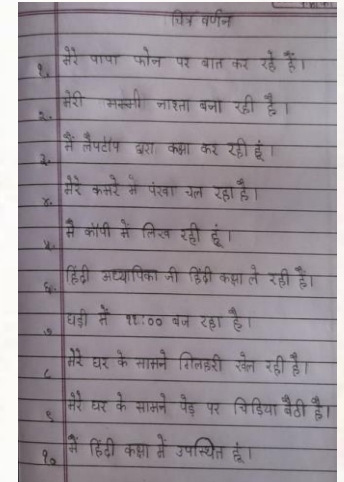 चित्र वर्णन
१. मेरे पापा फोन पर बात कर रहे हैं।
२. मेरी मम्मी नाश्ता बना रही है।
३. मैं लैपटॉप द्वारा कक्षा कर रही हूं।
४. मेरे कमरे में पंखा चल रहा है।
५. मैं कॉपी में लिख रही हूं।
६. हिंदी अध्यापिका जी हिंदी कक्षा ले रही हैं।
७ घड़ी में ११:०० बज रहा है।
८ मेरे घर के सामने गिलहरी खेल रही है।
९ मेरे घर के सामने पेड़ पर चिड़िया बैठी है।
१० मैं हिंदी कक्षा में उपस्थित हूं।